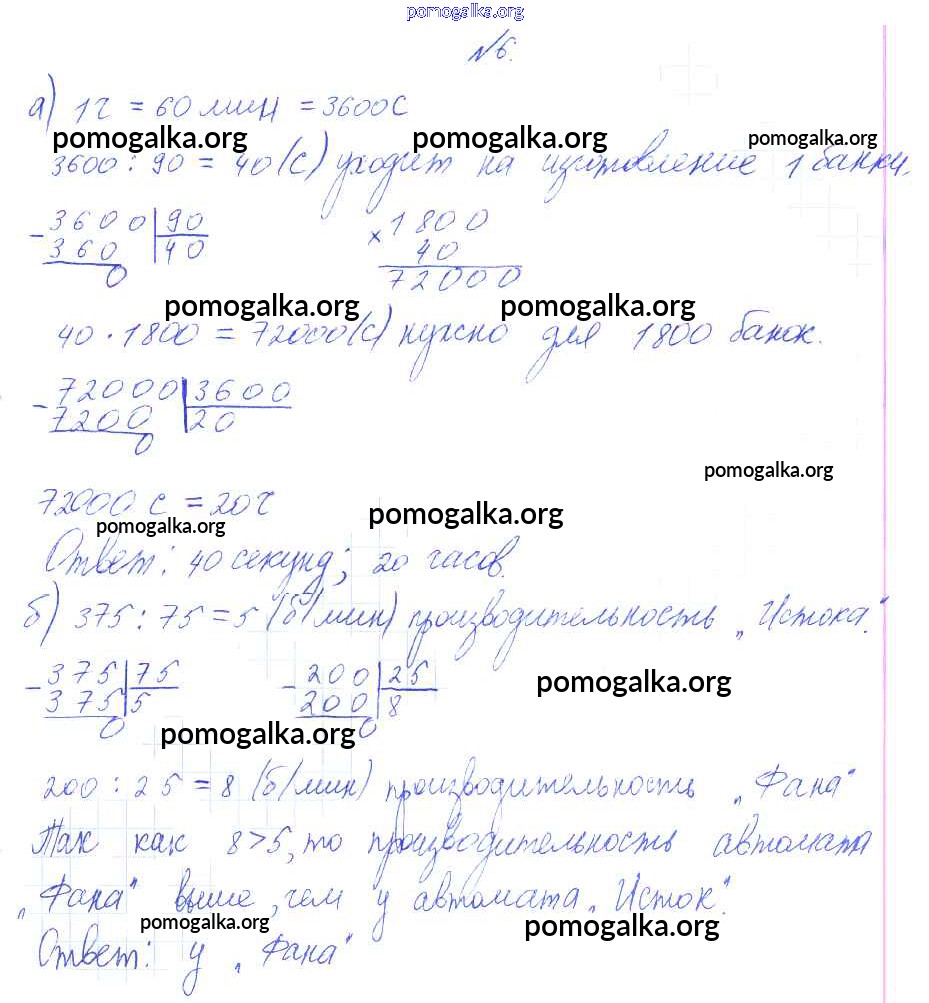 pomogalka.org
№6.
а) 1ч = 60 мин = 3600с
pomogalka.org pomogalka.org pomogalka.org
3600 : 90 = 40 (с) уходит на изготовление 1 банки.
- 3600 | 90 × 1800
360 | 40 40
0 72000
pomogalka.org pomogalka.org
40 · 1800 = 72000 (с) нужно для 1800 банок.
- 72000 | 3600
7200 | 20
0
pomogalka.org
72000 с = 20ч
pomogalka.org pomogalka.org
Ответ: 40 секунд; 20 часов.
б) 375 : 75 = 5 (б/мин) производительность „Истока".
- 375 | 75 - 200 | 25
375 | 5 200 | 8
0 0
pomogalka.org pomogalka.org
200 : 25 = 8 (б/мин) производительность „Фана"
Так как 8 > 5, то производительность автомата
„Фана" выше, чем у автомата „Исток".
pomogalka.org pomogalka.org
Ответ: у „Фана"